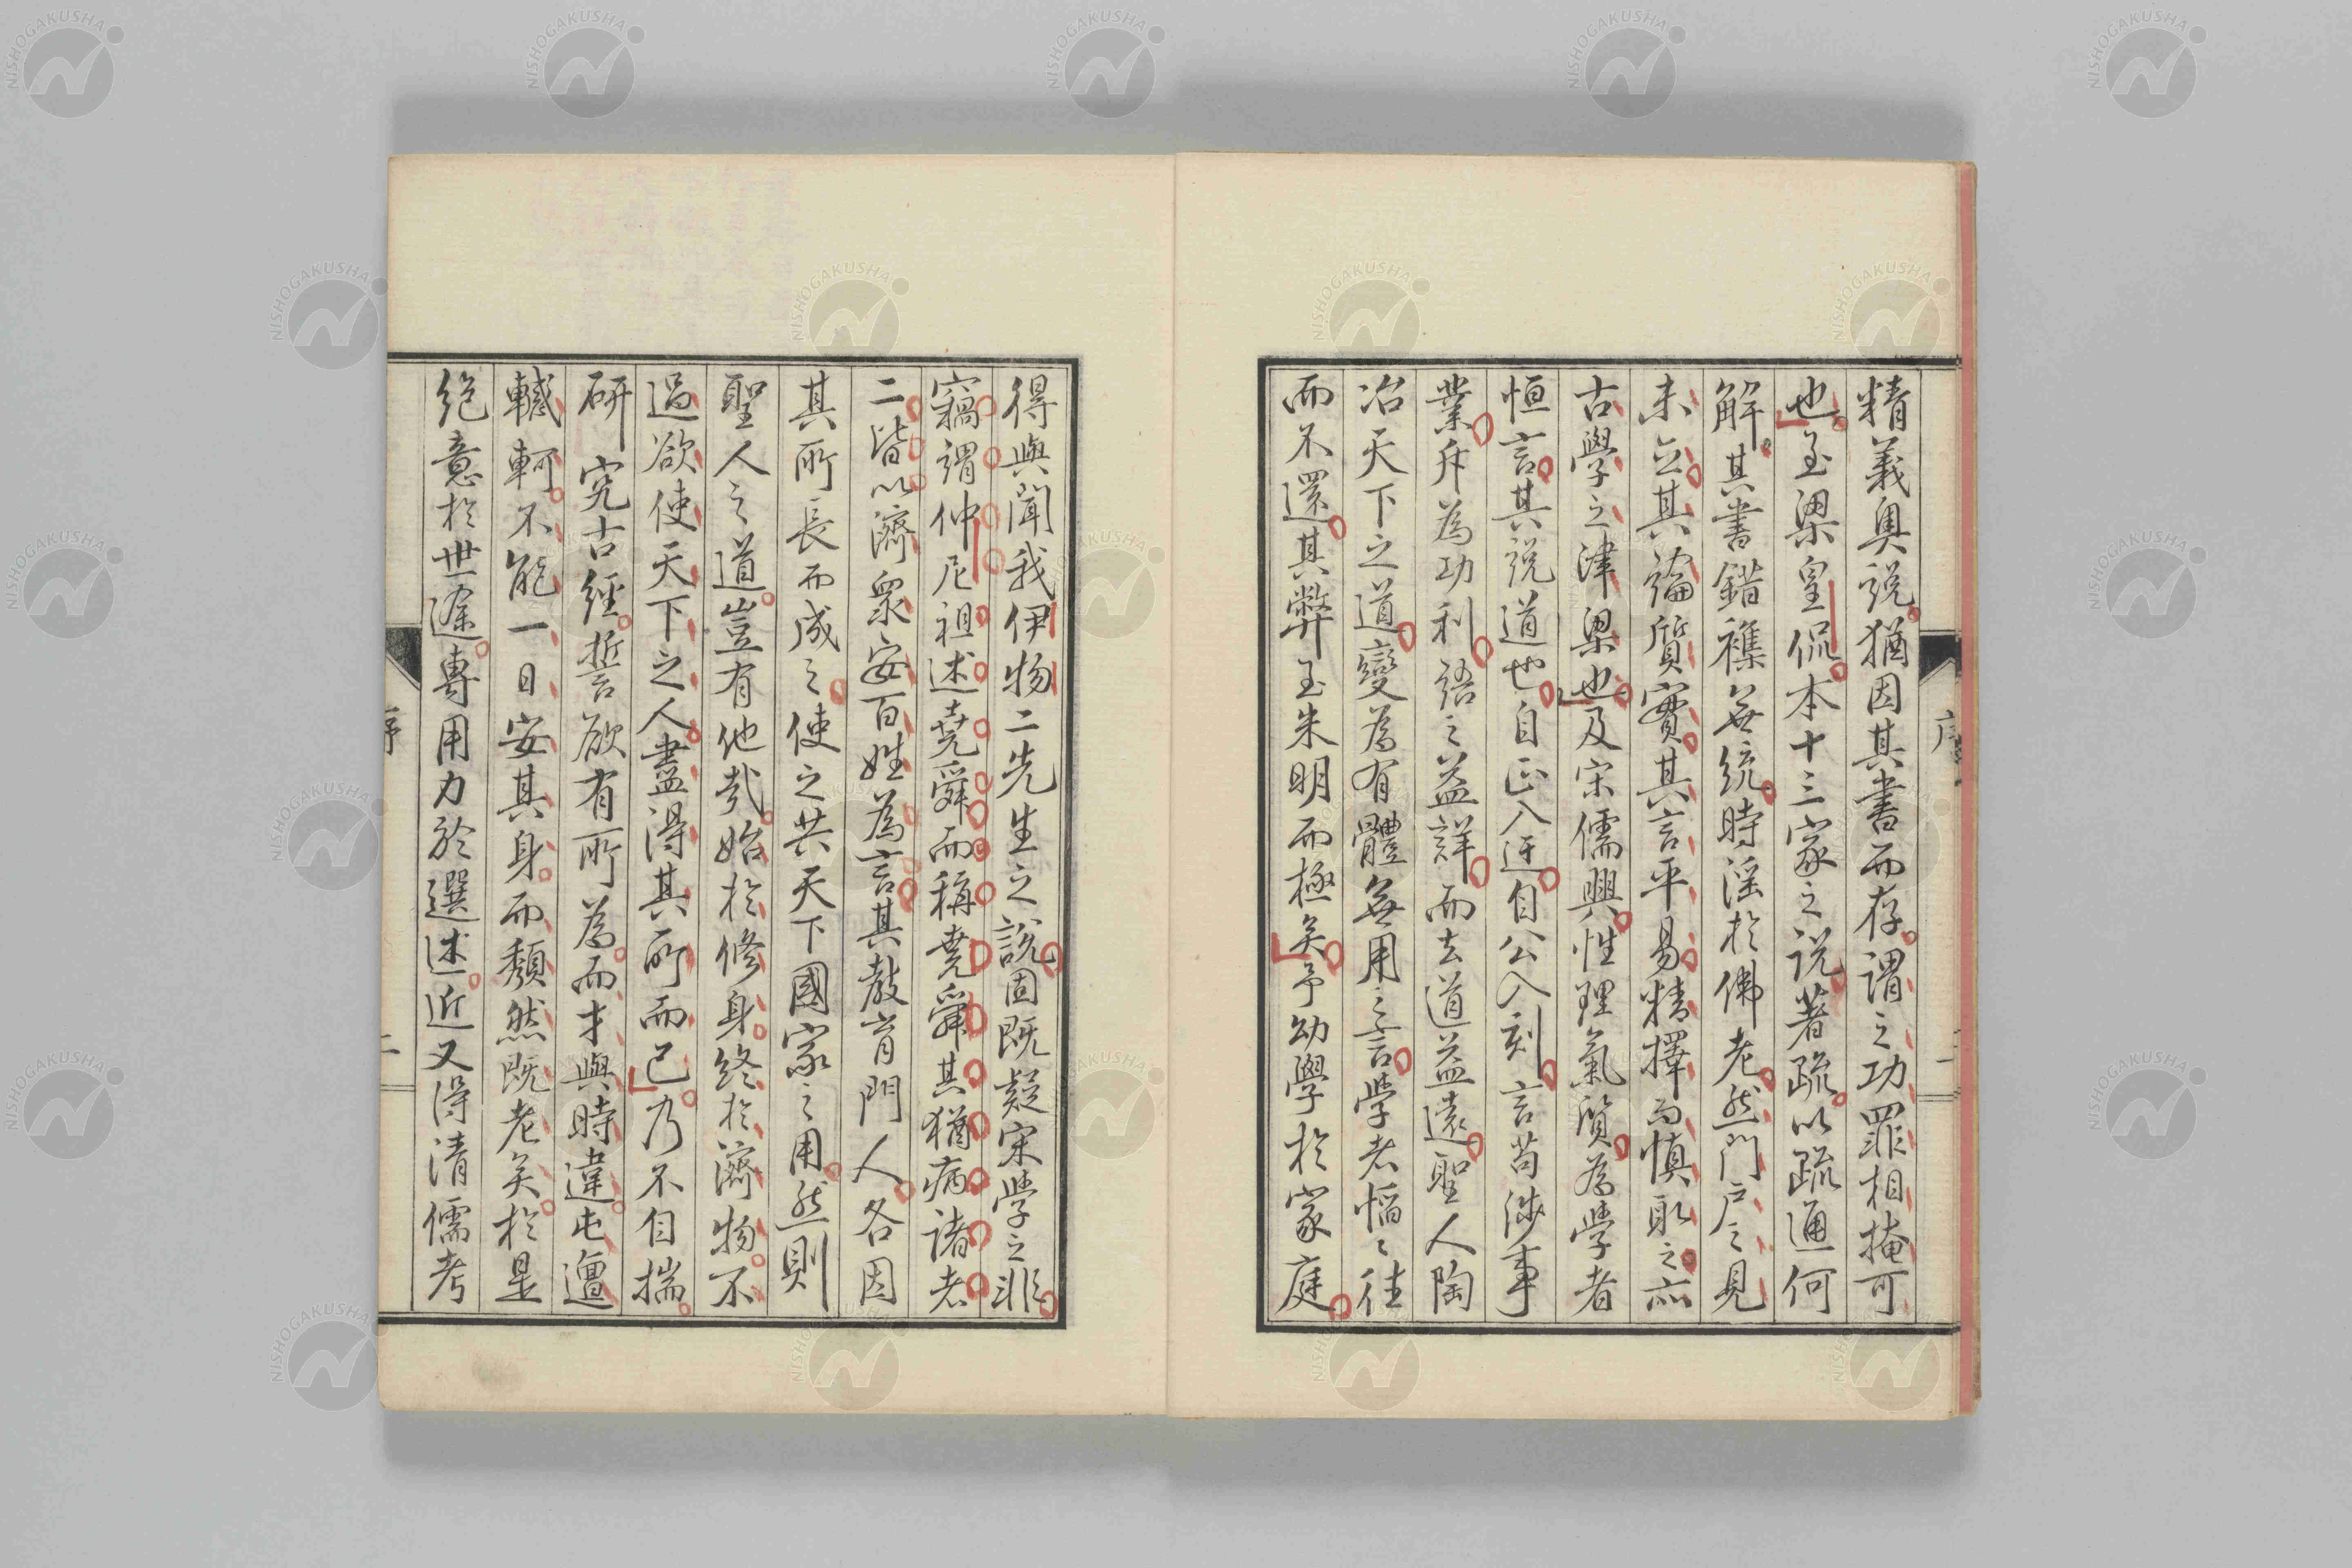 精義奥説猶因其書而存謂之功罪相掩可
也至梁皇侃本十三家之説著疏以疏通何
解其書錯襍無統時淫於佛老然門戸之見
未立其論質實其言平易精擇而慎取之亦
古學之津梁也及宋儒興性理氣質為學者
恒言其説道也自正入迂自公入刻言苟涉事
業斥為功利語之益詳而去道益遠聖人陶
冶天下之道變為有體無用之言學者慆〻往
而不還其弊至朱明而極矣予幼學於家庭
得與聞我伊物二先生之説固既疑宋學之非
竊謂仲尼祖述堯舜而稱堯舜其猶病諸者
二皆以濟衆安百姓為言其教育門人各因
其所長而成之使之共天下國家之用然則
聖人之道豈有他哉始於修身終於濟物不
過欲使天下之人盡得其所而已乃不自揣
研究古經誓欲有所為而才與時違屯邅
轗軻不能一日安其身而頽然既老矣於是
絶意於世途專用力於選述近又得清儒考
序
二
NISHOGAKUSHA